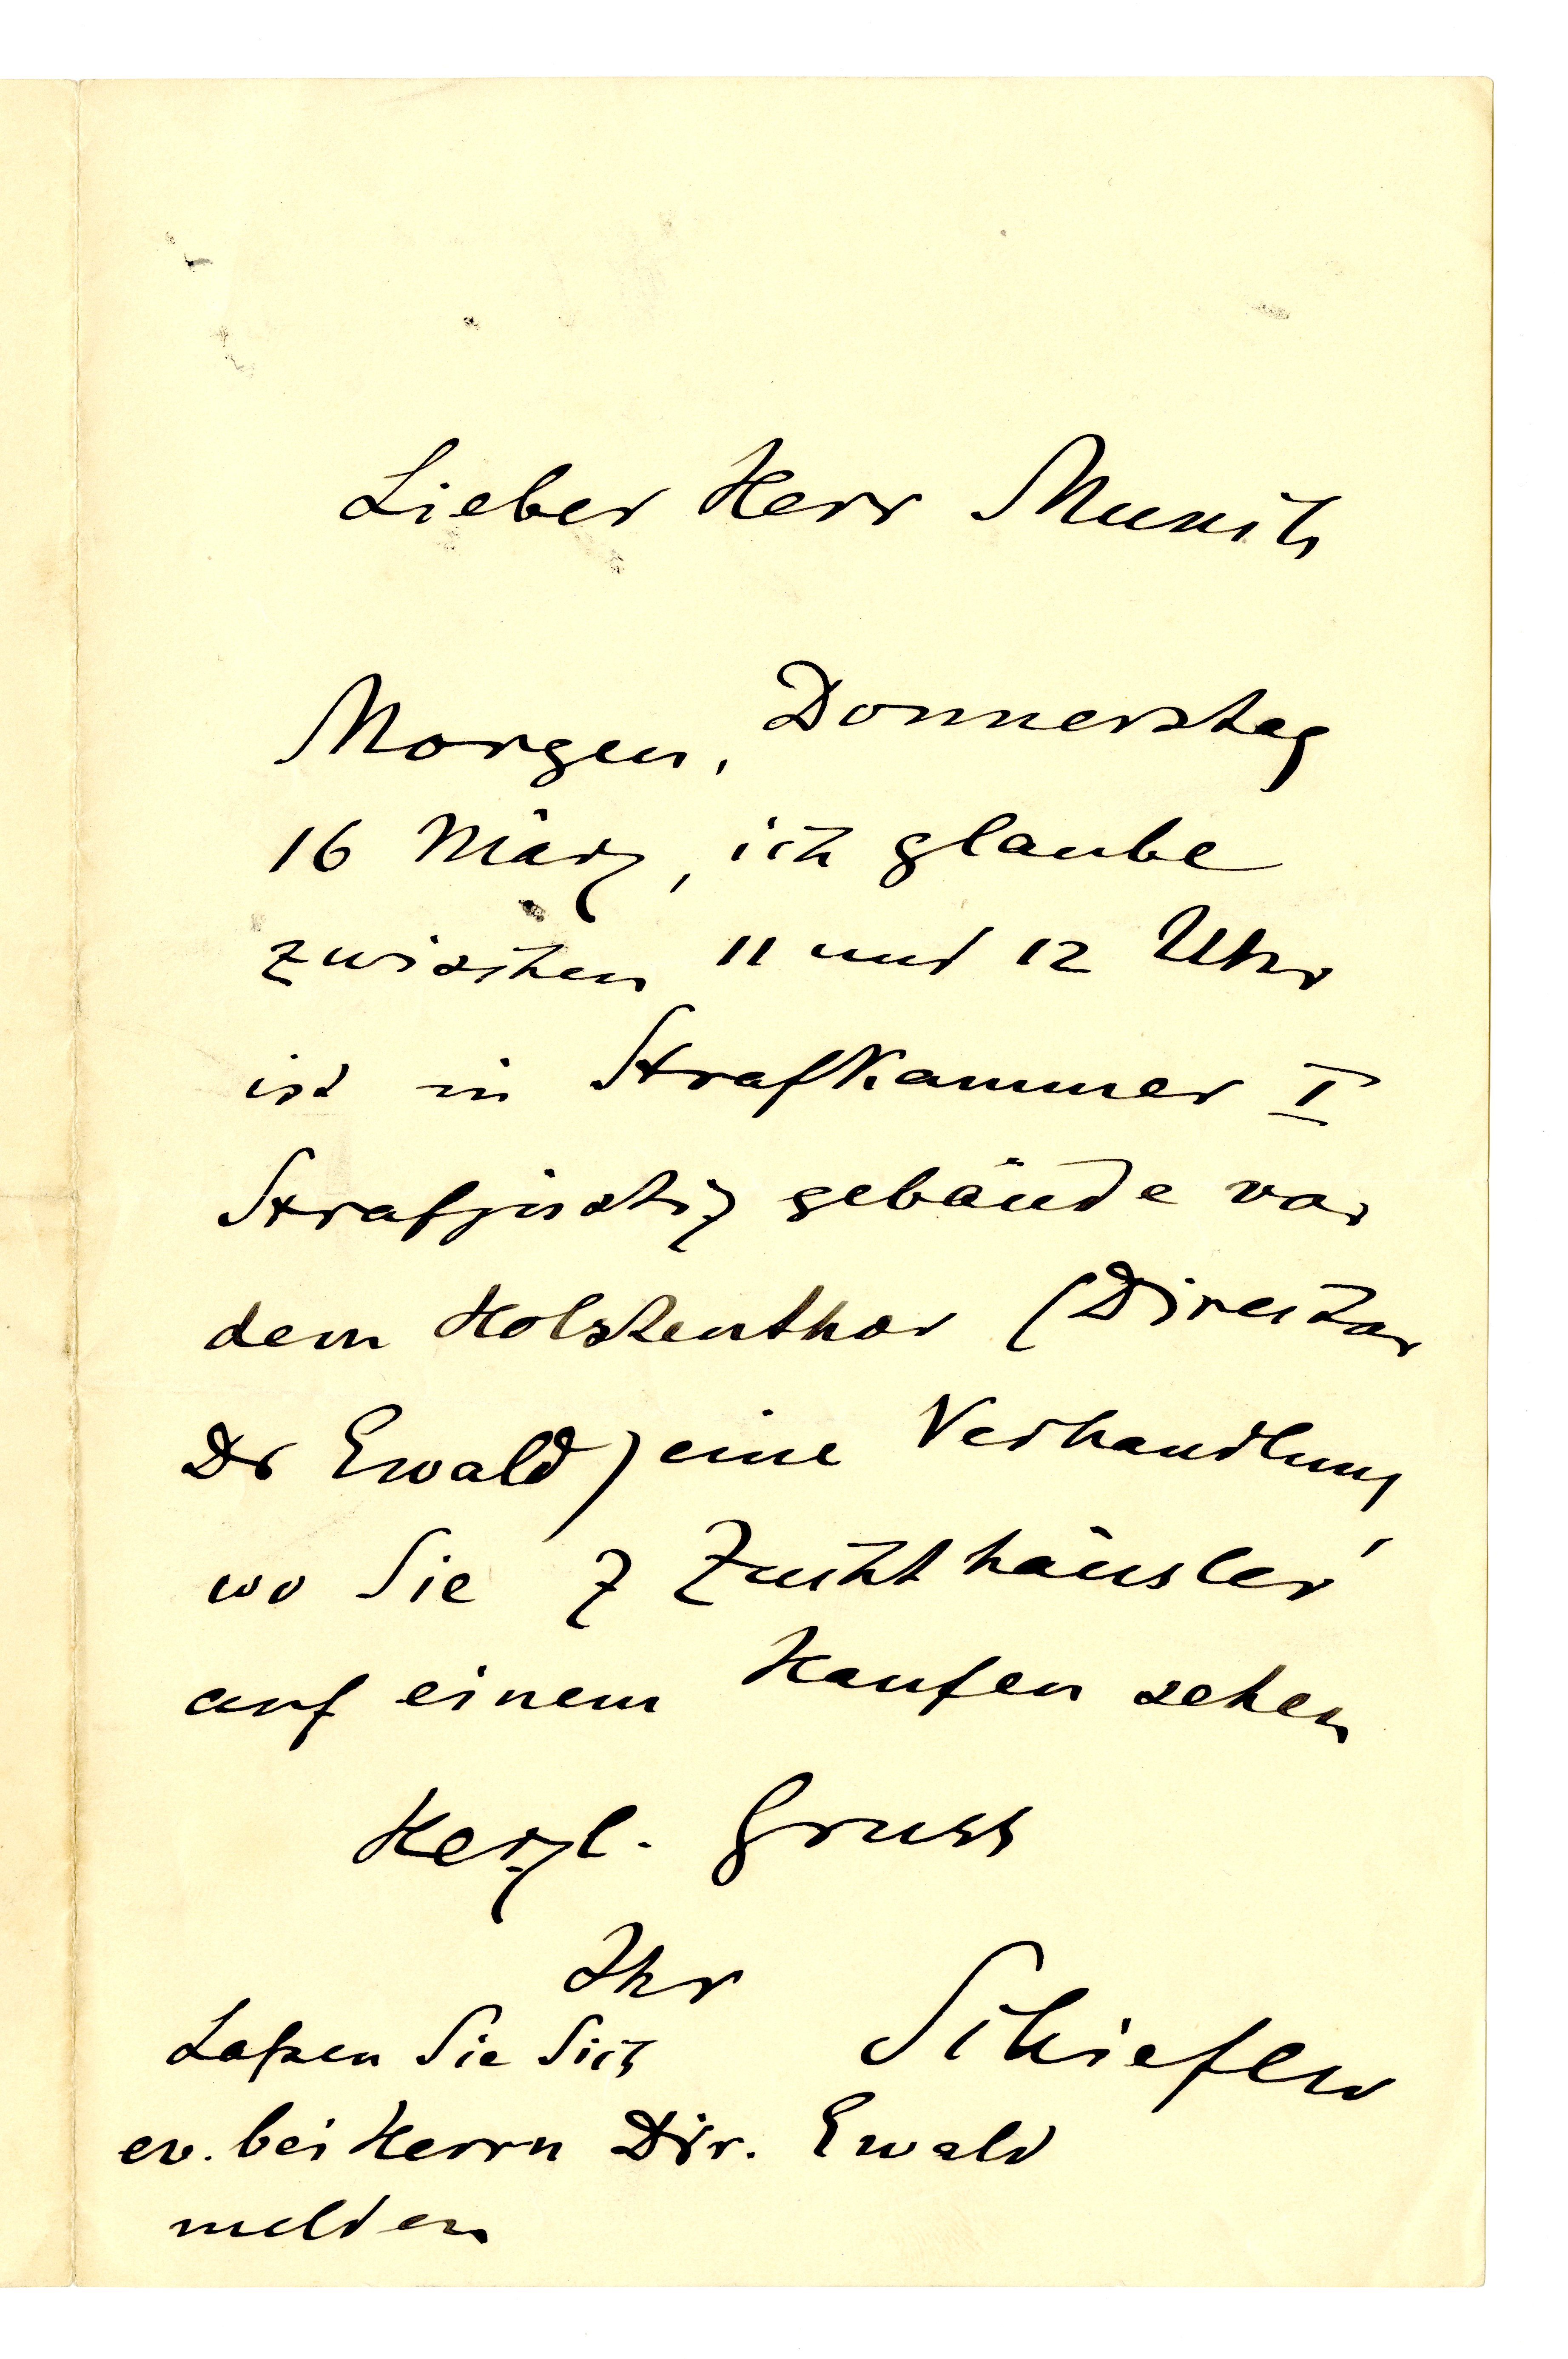 Lieber Herr Munch
Morgen, Donnerstag
16 März, ich glaube
zwischen 11 und 12 Uhr
ist in Strafkammer I
Strafjustizgebäude vor
dem Holstenthor (Director
Dr Ewald) eine Verhandlung,
wo Sie 7 Zuchthäusler
auf einem Haufen sehen
Herzl. Gruss
Ihr
Schiefler
Laßen Sie Sich
ev. bei Herrn Dir. Ewald
melden